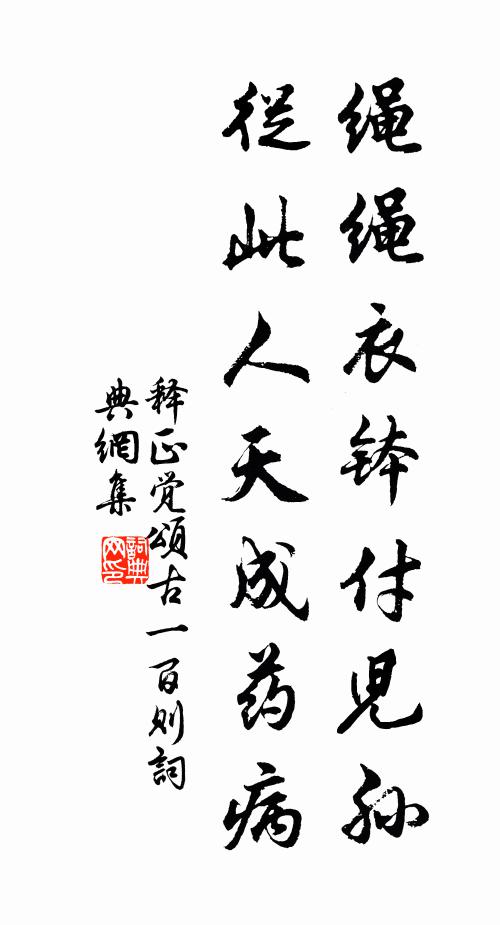 绳绳衣钵付児孙
從此人天成药病
释正觉頌古一百则詞
典網集
詞典
网印